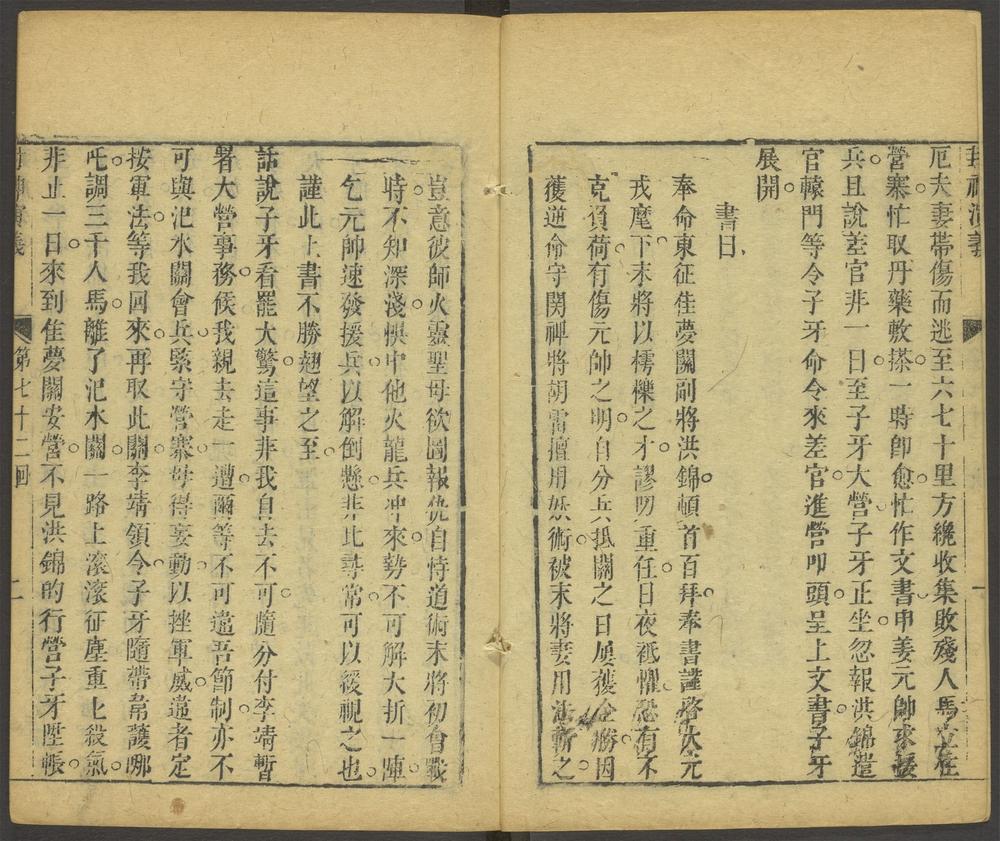 封神演義
厄夫妻帶傷而逃至六七十里方纔收集敗殘人馬立在
營寨忙取丹藥敷搽一時卽愈忙作文書申姜元帥求援
兵且說差官非一日至子牙大營子牙正坐忽報洪錦遣
官轅門等令子牙命令來差官進營叩頭呈上文書子牙
展開
書曰
奉命東征佳夢關副將洪錦頓首百拜奉書謹啓大元
戎麾下末將以樗櫟之才謬叨重任日夜祗懼恐有不
克負荷有傷元帥之明自分兵抵關之日屢獲全勝因
獲逆命守関裨將胡雷擅用妖術被末將妻用法斬之
豈意彼師火靈聖母欲圖報仇自恃道術末將初會戰
時不知深淺惧中他火龍兵冲來勢不可解大折一陣
乞元帥速發援兵以解倒懸非比尋常可以緩視之也
謹此上書不勝翹望之至
話說子牙看罷大驚這事非我自去不可隨分付李靖暫
署大營事務候我親去走一遭爾等不可違吾節制亦不
可與汜水關會兵緊守營寨毋得妄動以挫軍威違者定
按軍法等我回來再取此關李靖領令子牙隨帶韋護哪
吒調三千人馬離了汜水關一路上滾滾征塵重重殺氣
非止一日來到佳夢關安營不見洪錦的行營子牙陞帳
封神演義
第七十二回
二